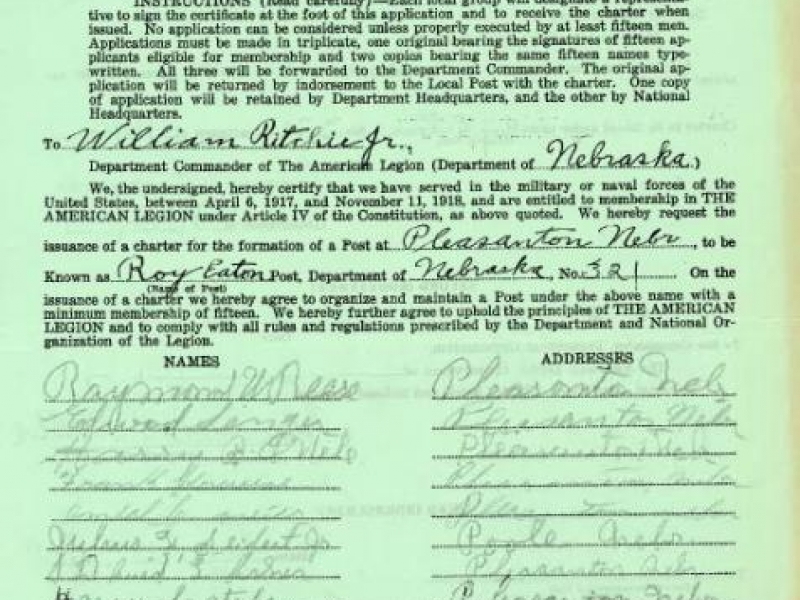 INSTRUCTIONS (Read carefully)—Each local group will designate a representa-
tive to sign the certificate at the foot of this application and to receive the charter when
issued. No application can be considered unless properly executed by at least fifteen men.
Applications must be made in triplicate, one original bearing the signatures of fifteen ap-
plicants eligible for membership and two copies bearing the same fifteen names type-
written. All three will be forwarded to the Department Commander. The original ap-
plication will be returned by indorsement to the Local Post with the charter. One copy
of application will be retained by Department Headquarters, and the other by National
Headquarters.
To William Ritchie Jr.,
Department Commander of The American Legion (Department of Nebraska)
We, the undersigned, hereby certify that we have served in the military or naval forces of the
United States, between April 6, 1917, and November 11, 1918, and are entitled to membership in THE
AMERICAN LEGION under Article IV of the Constitution, as above quoted. We hereby request the
issuance of a charter for the formation of a Post at Pleasanton Nebr, to be
Known as Roy Eaton Post, Department of Nebraska, No. 321 On the
(Name of Post)
issuance of a charter we hereby agree to organize and maintain a Post under the above name with a
minimum membership of fifteen. We hereby further agree to uphold the principles of THE AMERICAN
LEGION and to comply with all rules and regulations prescribed by the Department and National Or-
ganization of the Legion.
NAMES ADDRESSES
Raymond W Reese Pleasanton Nebr
Edward Pleasanton Nebr
Harry Pleasanton Nebr
Frank
Julius Seifert Jr Poole Nebr
David Pleasanton Nebr
Pleasanton Nebr